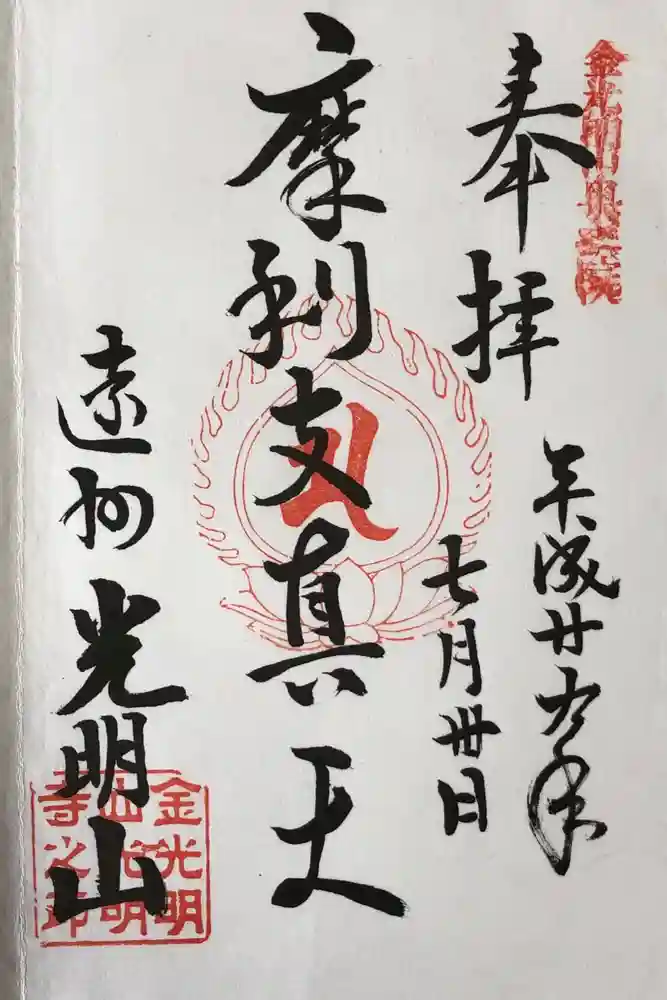 金光明奥之院
奉拝
平成廿九年
七月卅日
摩利支真天
遠州光明山
金光明
山光明
寺之印